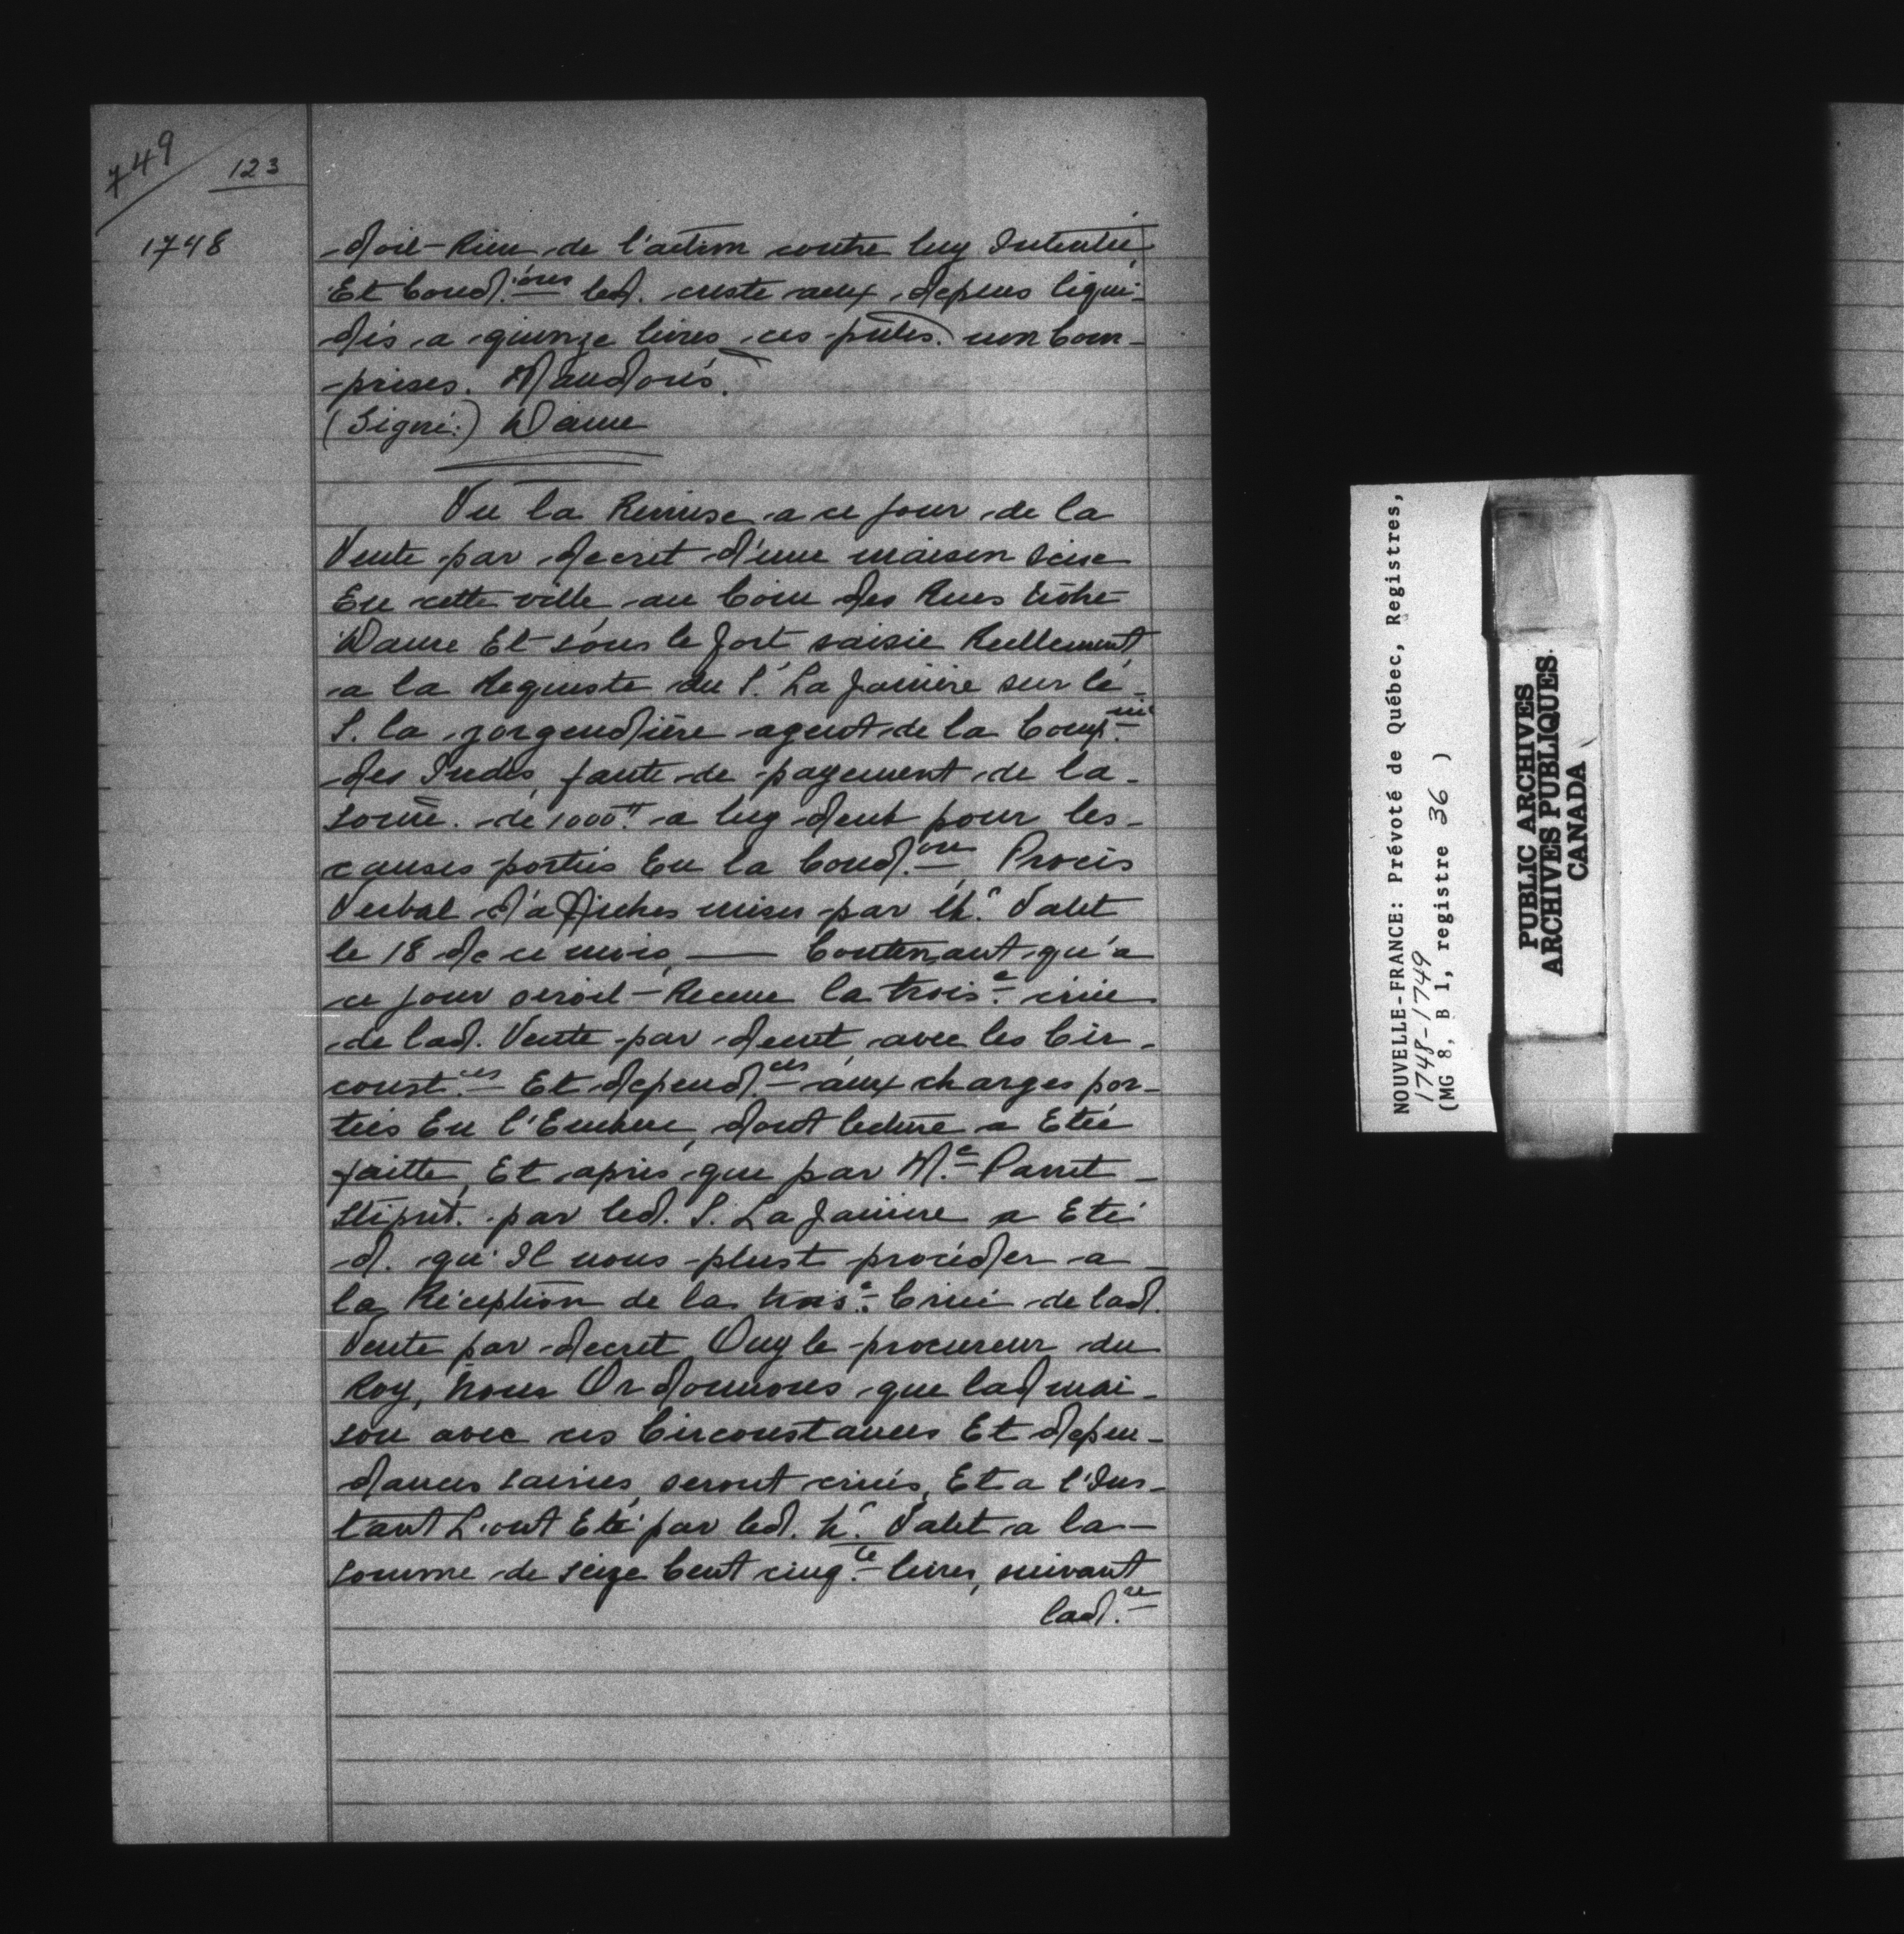 749
123
1748
doit Rien de l'action contre luy Intentée
Et Cond.ons led. aux depens liqui-
dés a quinze livres ces pntes. non Com-
prises. Mandons.
(Signé:) Daine
Vu la Remise a ce jour de la
Vente par decret d'une maison scise
En cette ville au Coin des Rues Nôtre
Dame Et sous le fort saisie Reellement
a la Requeste du S.r La Janiere sur le
S. la gorgendière agent de la Comp.nie
des Indes, faute de payement de la
some. de 1000.tt a luy deub pour les
causes portées En la Cond.on, Procès
Verbal d'affiches mises par th.r Valet
le 18 de ce mois, — Contenant qu'a
ce jour seroit Receue la trois.e criée
de lad. Vente par decret avec les Cir-
const.ces Et depend.ces aux charges por-
tées En l'Enchere, dont lecture a Eté
faitte, Et aprés que par M.e Panet
stipnt. par led. S. La Janiere a Eté
d. qu'Il nous plust procéder a
la Réception de la trois.e Criée de lad.
Vente par decret Ouy le procureur du
Roy, Nous Ordonnons que lad mai-
son avec ces Circonstances Et depen-
dances saisies, seront criées, Et a l'Ins-
tant L'ont Eté par led. h.r Valet a la
somme de seize Cent cinq.te livres, suivant
lad.re
NOUVELLE-FRANCE: Prévoté de Québec, Registres,
1748-1749
(MG 8, B 1, registre 36 )
PUBLIC ARCHIVES
ARCHIVES PUBLIQUES
CANADA